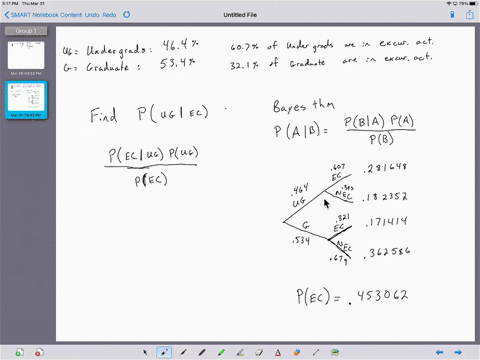 5:17 PM Thu Mar 31
79%
SMART Notebook Content Undo Redo
Untitled File
Group 1
UG = Undergrads : 46.4%
G = Graduate : 53.4%
60.7% of Undergrads are in excur. act.
32.1% of Graduate are in excur. act.
Find P(UG | EC)
P(EC | UG) P(UG)
P(EC)
Bayes thm
P(A | B) = P(B | A) P(A)
P(B)
.607
EC
.281648
.464
UG
.393
NEC
.182352
.321
EC
.171414
G
.534
NEC
.679
.362586
P(EC) = .453062